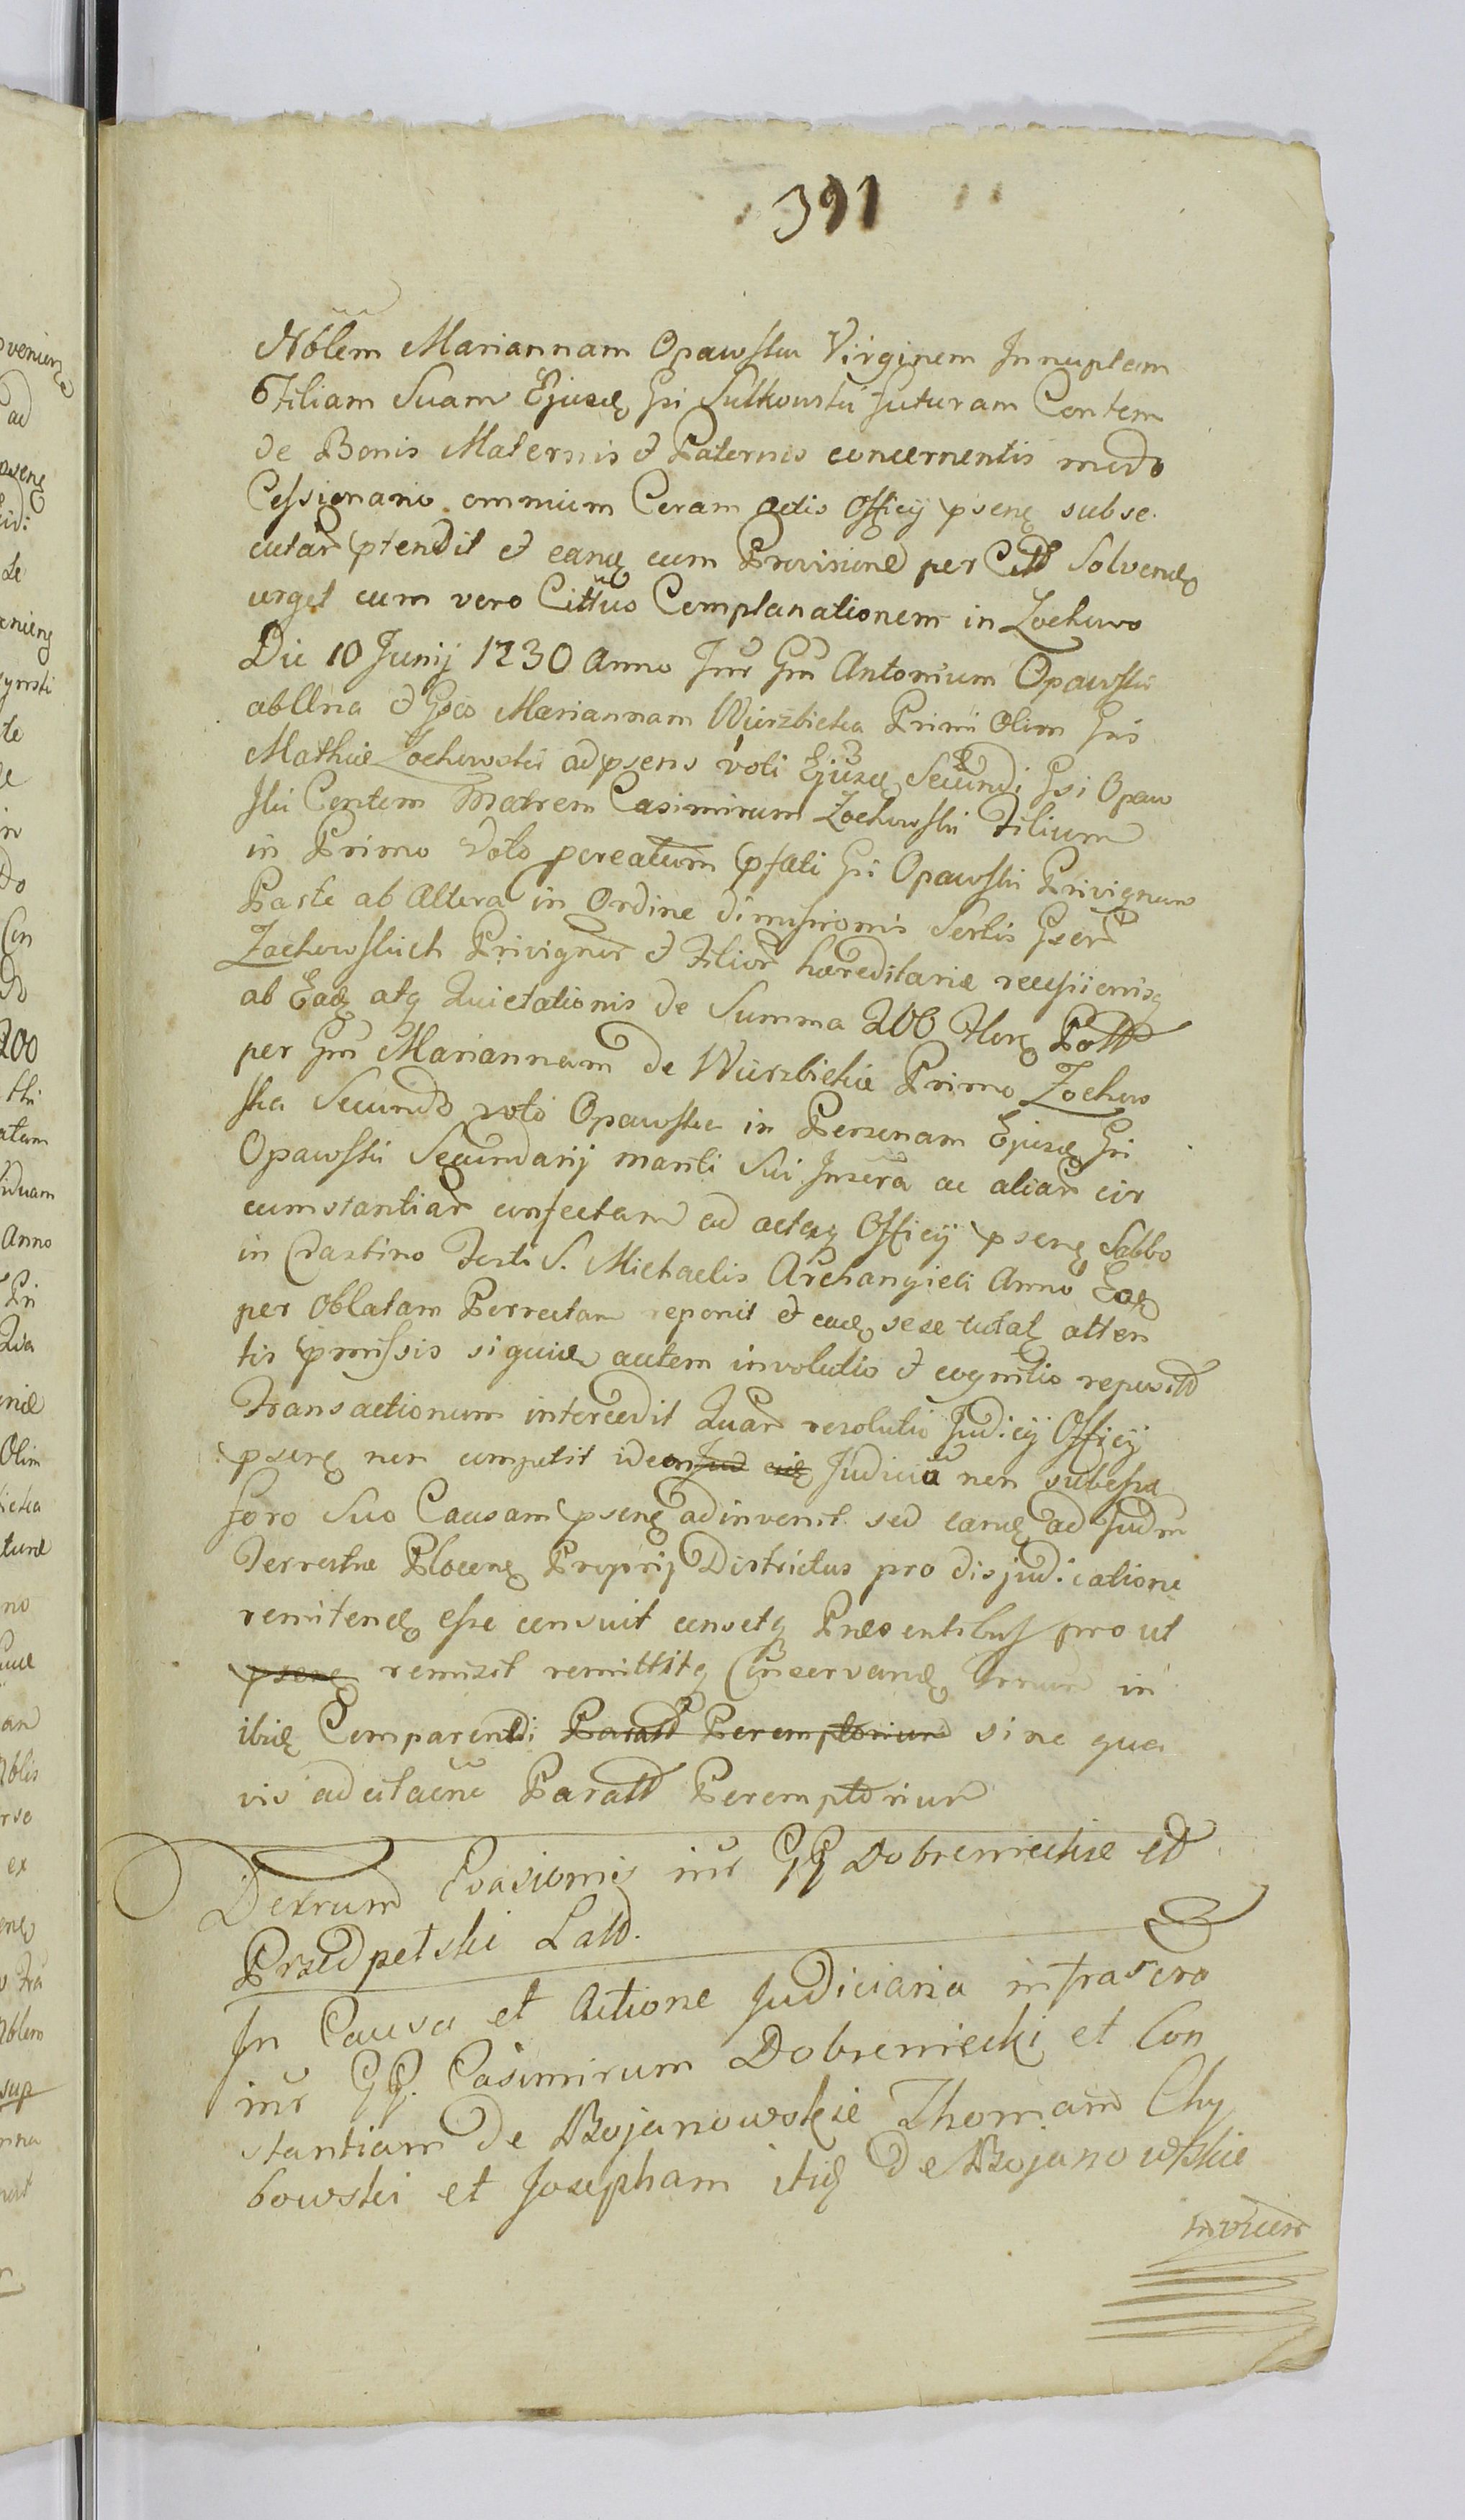 391
Nôlem Mariannam Opawska Virginem Innuptam
Filiam Suam Ejusdę Gsi Sulkowski futuram Contem
de Bonis Maternis et Paternis concernentis modo
Cessionario omnium Coram actis Officij psenę subse
cutar ptendit et eandę cum Provisione per Citt Solvendę
urget cum vero Cittus Complanationem in Zochowo
Die 10 Junij 1730 Anno Inr Gm Antonium Opawski
ab Una et Gsos Mariannam Wierzbicka Primi Olim Gsi
Mathiæ Zochowski ad psens voti Ejusdę Secundi Gsi Opaw
ski Contem Matrem Casimirum Zochowski Filium
in Primo Voto pcreatum pfati Gsi Opawski Privignum
Parte ab Altera in Ordine dimissionis Sortis Gser
Zochowskich Privignor et Filior hæreditariæ recessionisq
ab Eadę atq Quietationis de Summa 200 Florę Poll
per Gm Mariannam de Wierzbickie Primo Zochow
ska Secundo voto Opawska in Personam Ejusdę Gsi
Opawski Secundarij mariti Sui Inserâ ac aliar cir
cumstantiar confectam ad actaq Officij psenę Sabbo
in Crastino Festi S. Michaelis Archangieli Anno Eodę
per Oblatam Porrectam reponit et eadę sese tutat atten
tis pmissis siquidę autem involutio et cognitio reposit
Transactionum intercedit Quar resolutio Judicij Officij
psenę non competit ideo Judiciû non subesse
foro Suo Causam psenę adinvenit sed eandę ad Judm
Terrestre Plocenę Proprij Districtus pro disjudicatione
remitendę esse censuit censetq Præsentibus prout
psenę remisit remittitq Conservandę Trrum in
ibidę Comparendi Paratt Peremptorium sine qua
vis adcitaône Paratt Peremptorium
Dexrum Evasionis inr GG Dobremieckie et
Przedpetski Latt.
In Causa et Actione Judiciaria infrascra
inr GG. Casimirum Dobremiecki et Con
stantiam de Bojanowskie Thomam Chy
bowski et Josepham itidę de Bojanowskie